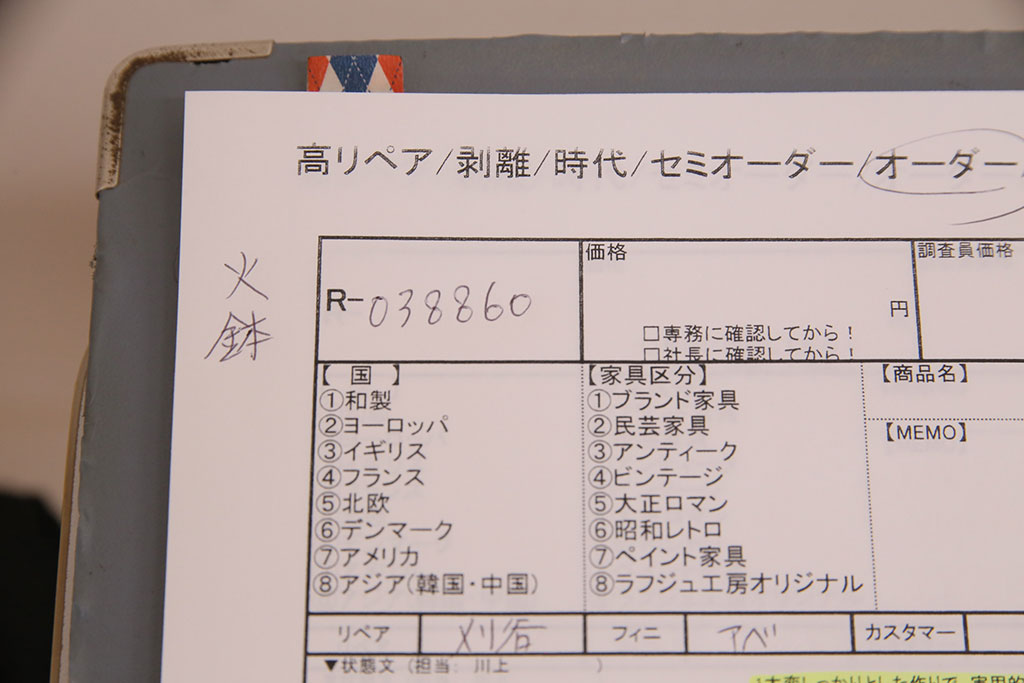 高リペア/剥離/時代/セミオーダー/オーダー/
火鉢
R-038860
価格
円
□専務に確認してから!
□社長に確認してから!
調査員価格
【 国 】
①和製
②ヨーロッパ
③イギリス
④フランス
⑤北欧
⑥デンマーク
⑦アメリカ
⑧アジア(韓国・中国)
【家具区分】
①ブランド家具
②民芸家具
③アンティーク
④ビンテージ
⑤大正ロマン
⑥昭和レトロ
⑦ペイント家具
⑧ラフジュ工房オリジナル
【商品名】
【MEMO】
リペア 刈谷 フィニ アベ カスタマー
▼状態文(担当: 川上 )